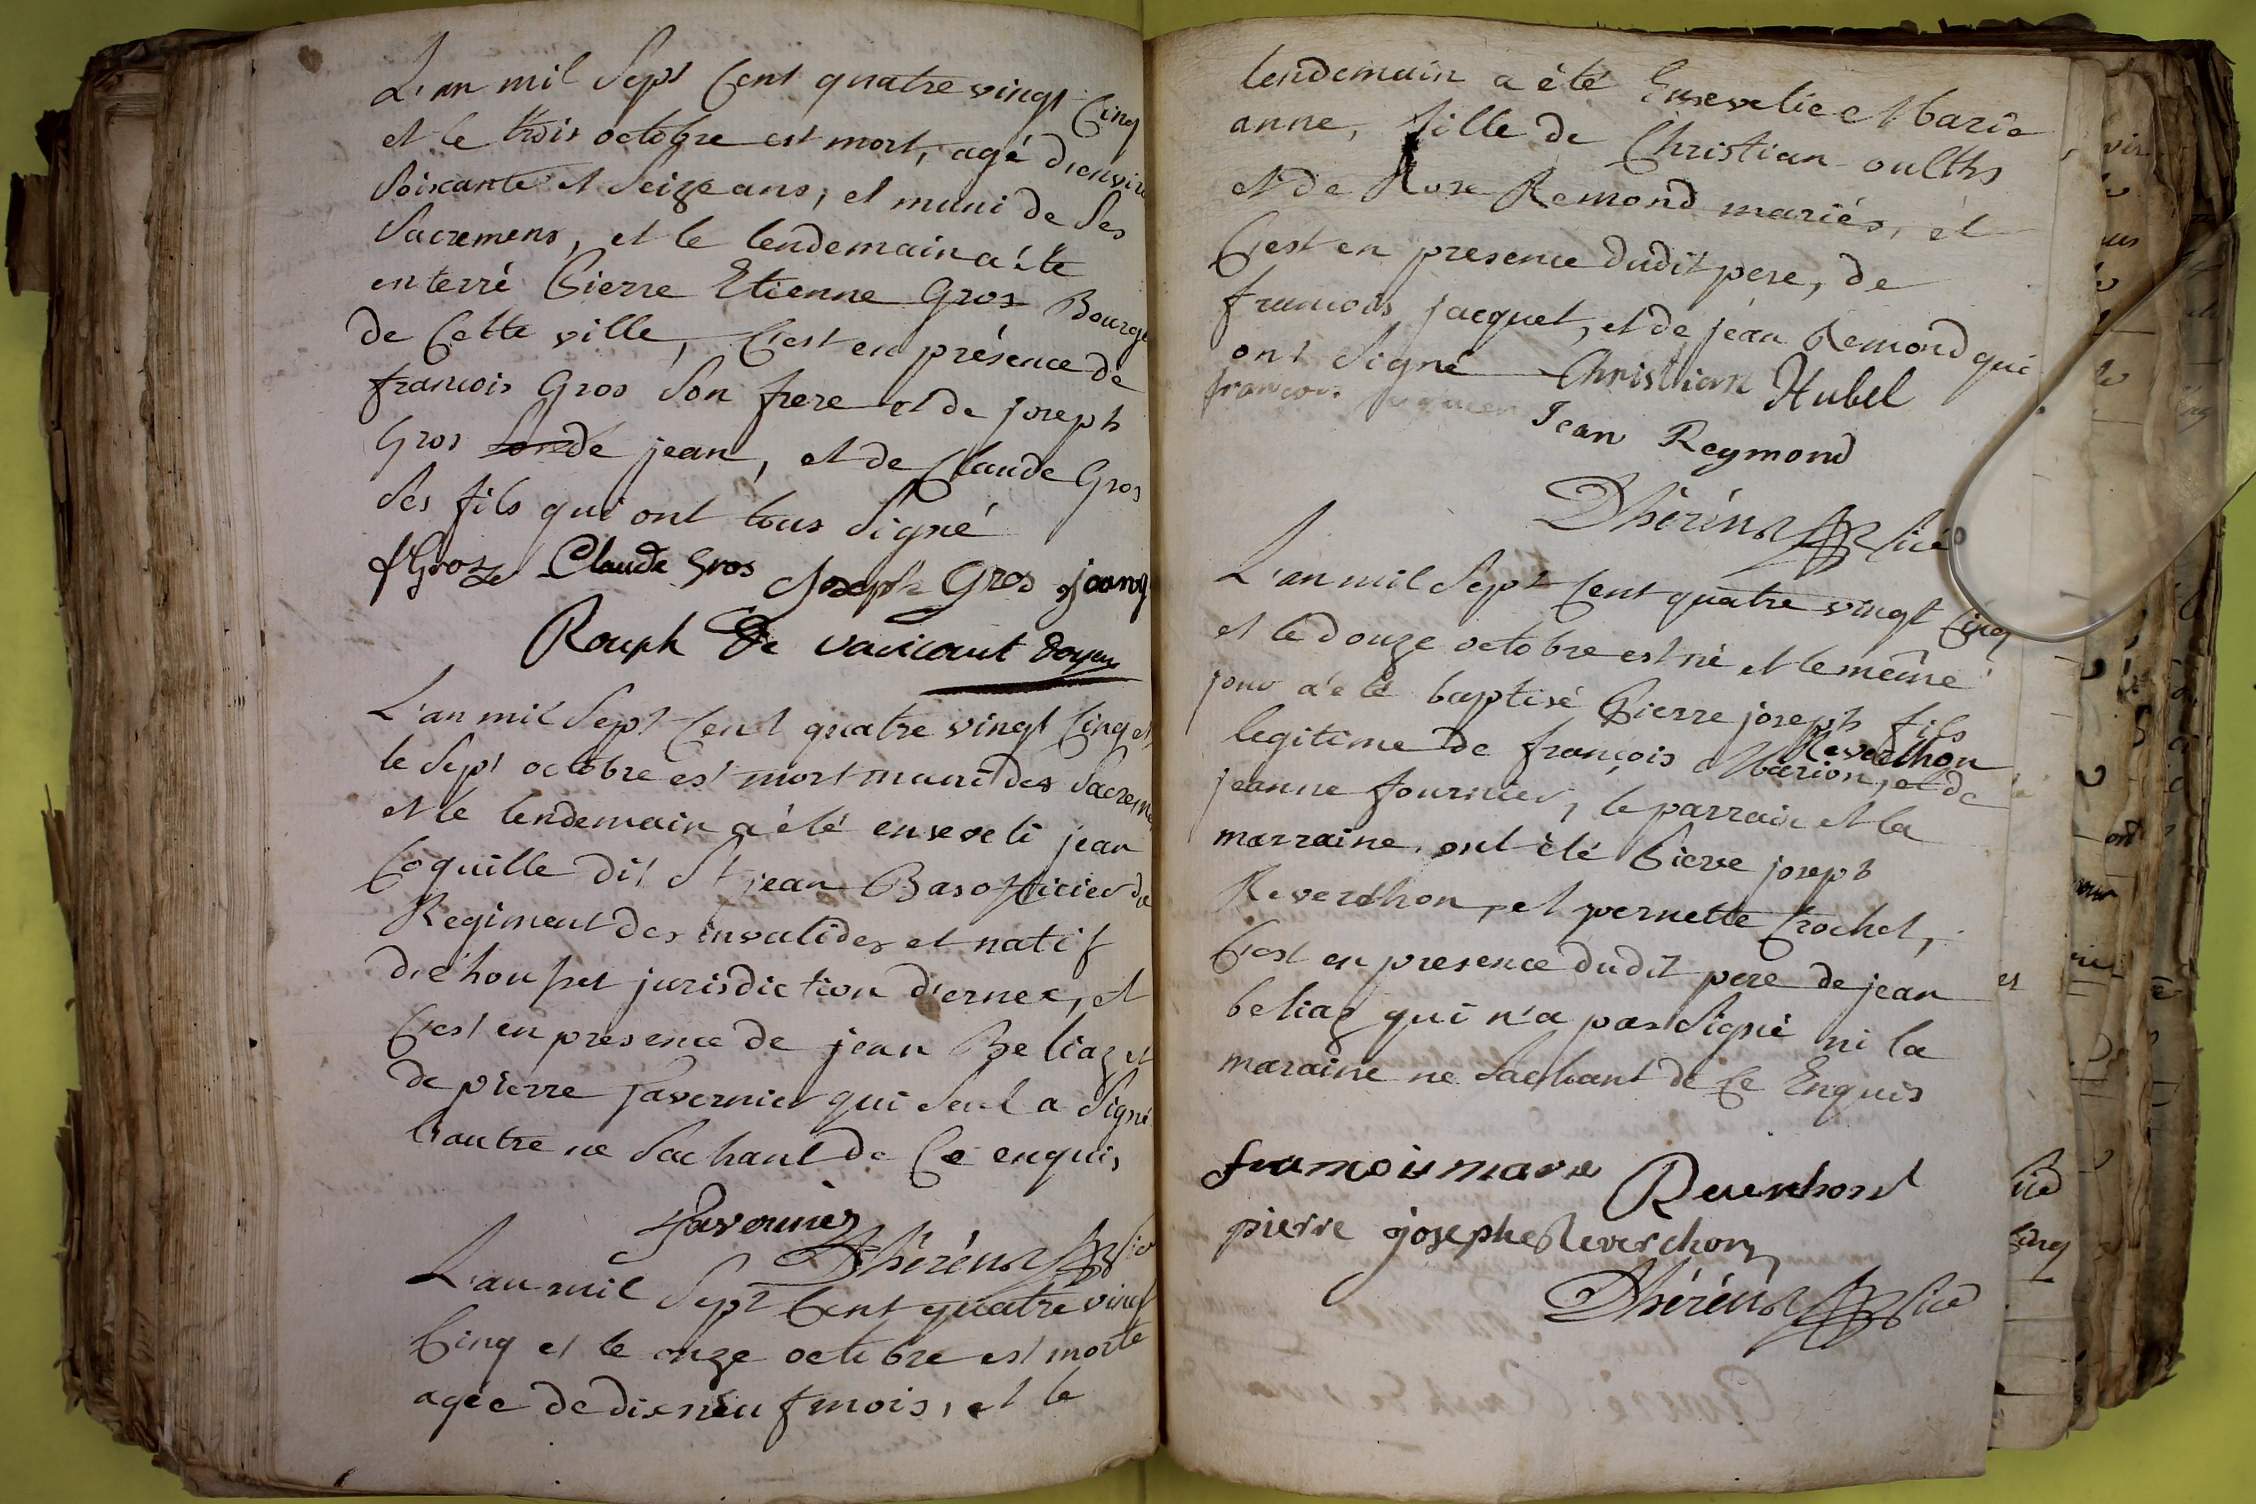 L'an mil Sept Cent quatre vingt Cinq
et le trois octobre est mort, agé d'enviro
Soixante et Seize ans, et muni de Ses
Sacremens, et le lendemain a été
enterré Pierre Etienne Gros Bourge
de Cette ville, C'est en présence de
francois Gros Son frere et de joseph
Gros de jean, et de Claude Gros
Ses fils qui ont tous Signé
f Gros Claude Gros Joseph Gros
Rouph De varicourt doyen
L'an mil Sept Cent quatre vingt Cinq et
le Sept octobre est mort muni des Sacreme
et le lendemain a été enseveli jean
Coquille dit St jean Bas officier du
Regiment des invalides et natif
jurisdiction d'ernex, et
C'est en presence de jean Beliaz et
de pierre Tavernier qui Seul a Signé
l'autre ne Sachant de Ce enquis
Tavernier Dhérens Vice
L'an mil Sept Cent quatre vingt
Cinq et le onze octobre est morte
agée de dixneuf mois, et le
lendemain a été Ensevelie Marie
anne, fille de Christian oulths
et de Rose Remond mariés, et
C'est en presence dudit pere, de
francois jacquet, et de jéan Remond qui
ont Signé Christian Hubel
francois
Jean Reymond
Dhérens Vice
L'an mil Sept Cent quatre vingt Cinq
et le douze octobre est né et le même
jour a été baptisé Pierre joseph fils
Reverchon
legitime de françois Marion, et de
jeanne fournier, le parrain et la
marraine ont été Pierre joseph
Reverchon, et pernette Crochet,
C'est en presence dudit pere de jean
beliaz qui n'a pas Signé ni la
maraine ne Sachant de Ce Enquis
francois marion Reverchon
pierre josephe Reverchon
Dhérens Vice